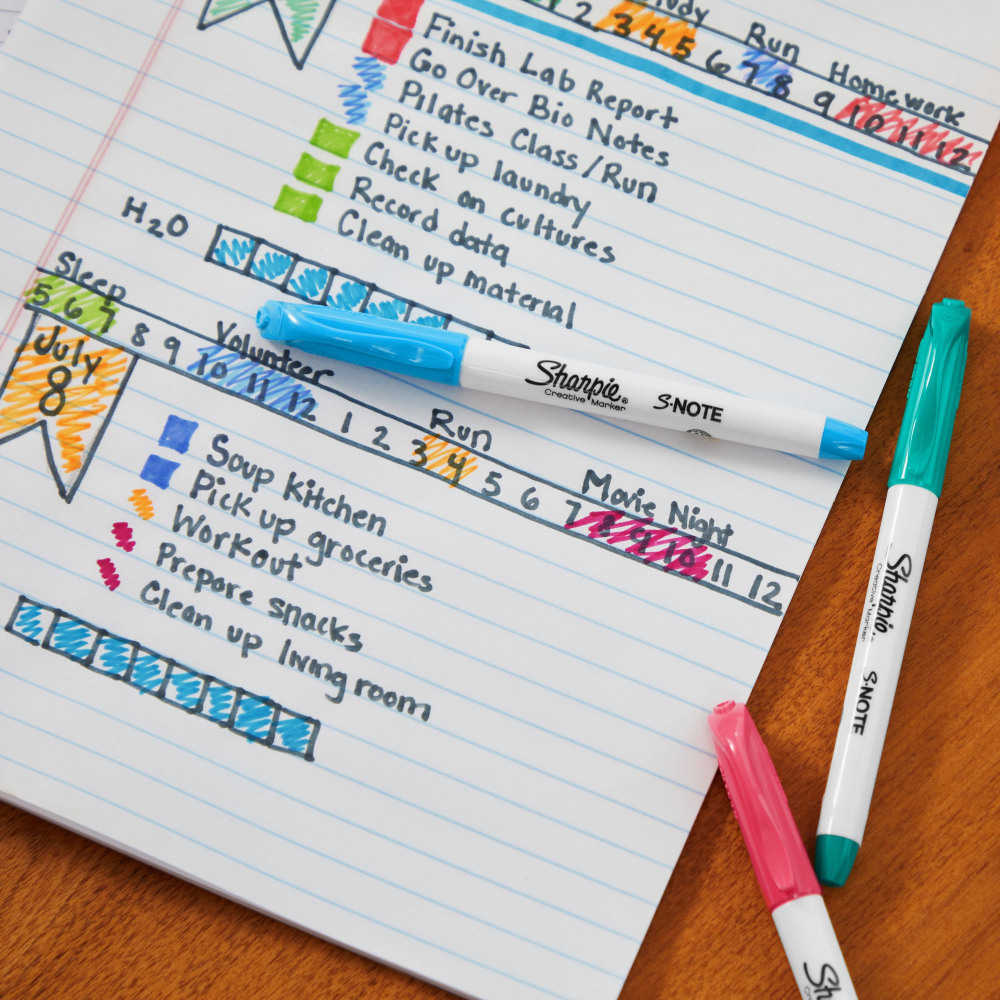 2 3 4 5 6 7 8 9 10 11 12
Run
Homework
Finish Lab Report
Go Over Bio Notes
Pilates Class/Run
Pick up laundry
Check on cultures
Record data
Clean up material
H2O
Sleep
Volunteer
Run
Movie Night
5 6 7 8 9 10 11 12 1 2 3 4 5 6 7 8 9 10 11 12
July
8
Soup Kitchen
Pick up groceries
Workout
Prepare snacks
Clean up living room
Sharpie®
Creative Marker
S·NOTE
Sharpie
Creative Marker
S·NOTE